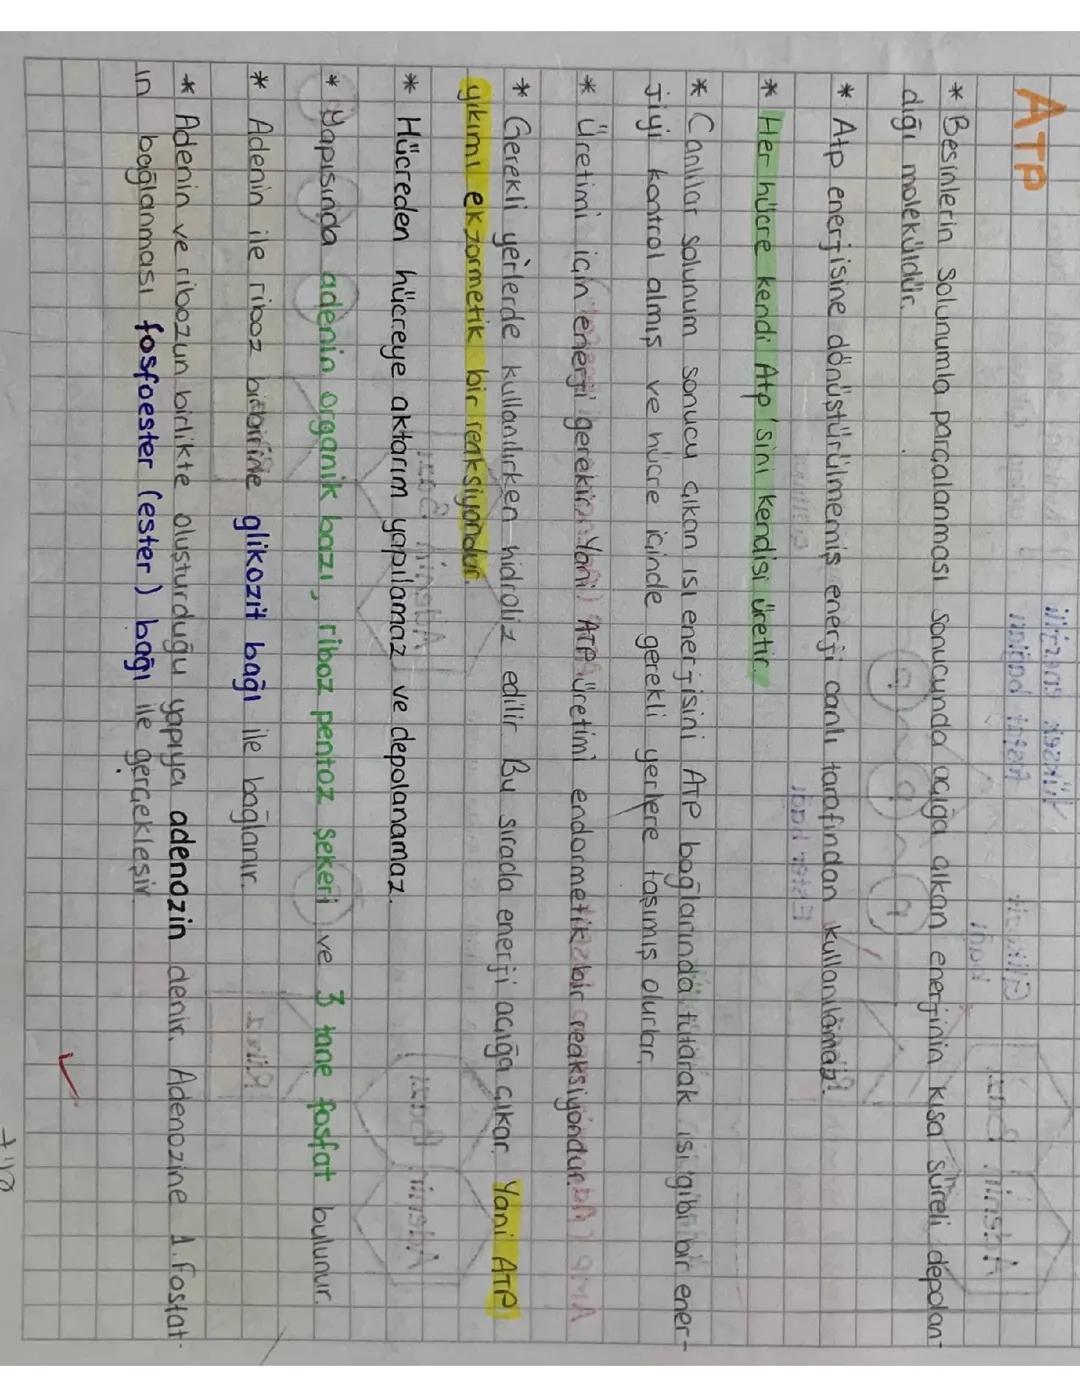 ATP
* Besinlerin solunumla parçalanması sonucunda açığa çıkan enerjinin kısa süreli depolan-
dığı moleküldür.
* Atp enerjisine dönüştürülmemiş enerji canlı tarafından kullanılamaz.
* Her hücre kendi Atp'sini kendisi üretir.
* Canlılar solunum sonucu çıkan ısı enerjisini ATP bağlarında tutarak ısı gibi bir ener-
jiyi kontrol almış ve hücre içinde gerekli yerlere taşımış olurlar.
* Üretimi için enerji gerekir. Yani ATP üretimi endormetik bir reaksiyondur.
* Gerekli yerlerde kullanılırken hidroliz edilir Bu sırada enerji açığa çıkar. Yani ATP
yıkımı ekzormetik bir reaksiyondur.
* Hücreden hücreye aktarım yapılamaz ve depolanamaz.
* Yapısında adenin organik bazı, riboz pentoz şekeri ve 3 tane fosfat bulunur.
* Adenin ile riboz birbirine glikozit bağı ile bağlanır.
* Adenin ve ribozun birlikte oluşturduğu yapıya adenozin denir. Adenozine 1. fosfat-
ın bağlanması fosfoester (ester) bağı ile gerçekleşir.